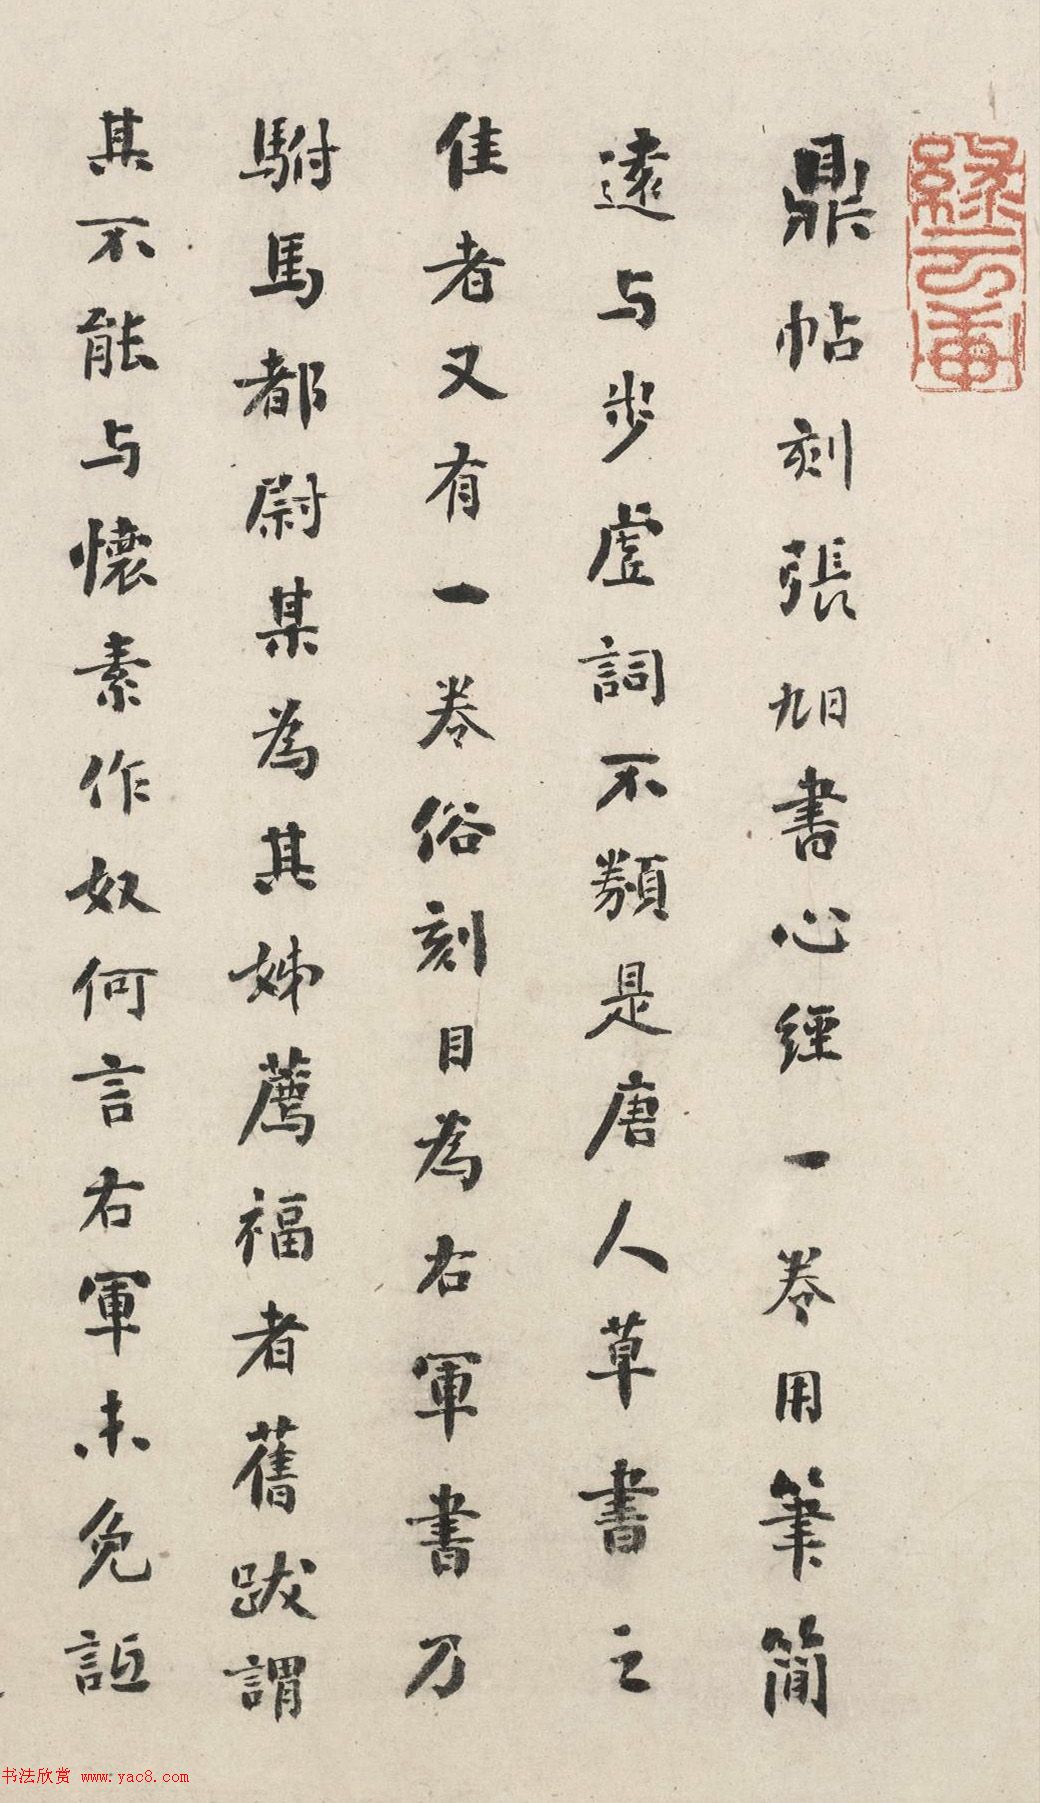 鼎帖刻張旭書心經一卷用筆簡
遠与步虛詞不類是唐人草書之
佳者又有一卷俗刻目為右軍書乃
駙馬都尉某為其姊薦福者舊跋謂
其不能与懷素作奴何言右軍未免詆
书法欣赏 www.yac8.com